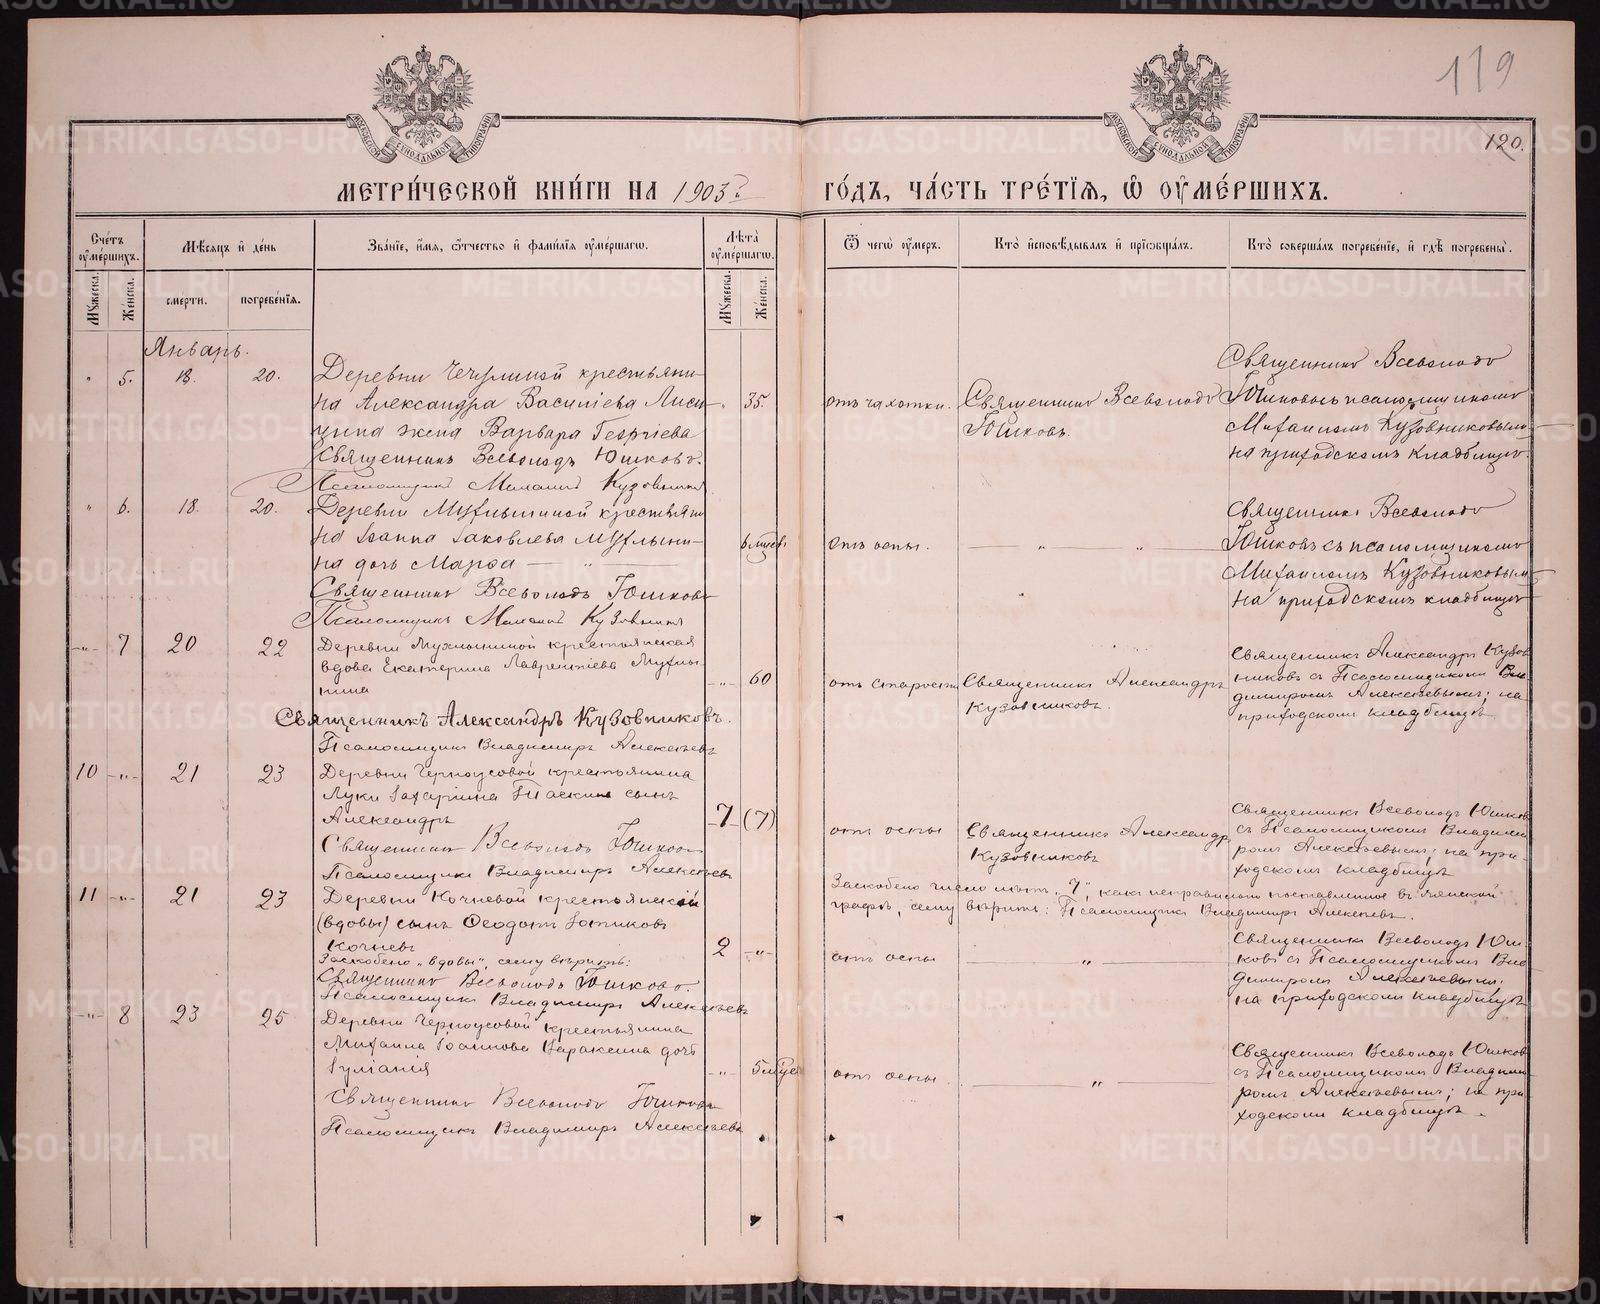 119
120.
МЕТРИ́ЧЕСКОЙ КНИ́ГИ НА 1903 г.
ГО́ДЪ, ЧА́СТЬ ТРЕ́ТІѦ, Ѡ ОУМЕ́РШИХЪ.
Сче́тъ оуме́ршихъ.
Мꙋ́жеска.
Же́нска.
Мѣ́сѧцъ и҆ де́нь
сме́рти.
погребе́нїѧ.
Зва́нїе, и҆́мѧ, ѻ҆́тчество и҆ фами́лїѧ оуме́ршагѡ.
Лѣ́та оуме́ршагѡ.
Мꙋ́жеска.
Же́нска.
Ѿ чегѡ̀ оу́меръ.
Кто̀ и҆сповѣ́дывалъ и҆ прїѡбща́лъ.
Кто̀ соверша́лъ погребе́нїе, и҆ гдѣ̀ погребены̀.
Январь.
" 5. 18. 20.
Деревни Чечулиной крестьяни-
на Александра Василіева Лиси-
цына жена Варвара Георгіева
Священникъ Всеволодъ Юшковъ.
Псаломщикъ Михаилъ Кузовников
" 35.
отъ чахотки.
Священникъ Всеволодъ
Юшковъ.
Священникъ Всеволодъ
Юшковъ съ псаломщикомъ
Михаиломъ Кузовниковымъ
на приходскомъ кладбищѣ.
" 6. 18. 20.
Деревни Мухлыниной крестьяни
на Іоанна Іаковлева Мухлыни-
на дочь Марѳа — " —
Священникъ Всеволодъ Юшковъ
Псаломщикъ Михаилъ Кузовников
6 мцевъ
отъ оспы.
— " — " —
Священникъ Всеволодъ
Юшковъ съ псаломщикомъ
Михаиломъ Кузовниковымъ
на приходскомъ кладбищѣ
-"- 7 20 22
Деревни Мухлыниной крестьянская
вдова Екатерина Лаврентіева Мухлы-
нина
Священникъ Александръ Кузовниковъ.
Псаломщикъ Владимиръ Алексѣевъ
-"- 60
отъ старости
Священникъ Александръ
Кузовниковъ.
Священникъ Александръ Кузов
никовъ съ Псаломщикомъ Вла-
димиромъ Алексѣевымъ; на
приходскомъ кладбищѣ.
10 -"- 21 23
Деревни Черноусовой крестьянина
Луки Захаріина Таскина сынъ
Александръ
Священникъ Всеволодъ Юшковъ
Псаломщикъ Владимиръ Алексѣевъ
7 (7)
отъ оспы
Священникъ Александръ
Кузовниковъ
Священникъ Всеволодъ Юшковъ
съ Псаломщикомъ Владими-
ромъ Алексѣевымъ; на при-
ходскомъ кладбищѣ
Заскоблено число лѣтъ „7", какъ неправильно поставленное въ женской
графѣ, сему вѣрить: Псаломщикъ Владимиръ Алексѣевъ.
11 -"- 21 23
Деревни Кочневой крестьянской
(вдовы) сынъ Ѳеодотъ
Кочневъ
Заскоблено „вдовы", сему вѣрить:
Священникъ Всеволодъ Юшковъ.
Псаломщикъ Владимиръ Алексѣевъ
2 -"-
отъ оспы
— " —
Священникъ Всеволодъ Юш-
ковъ съ Псаломщикомъ Вла-
димиромъ Алексѣевымъ;
на приходскомъ кладбищѣ
-"- 8 23 25
Деревни Черноусовой крестьянина
Михаила Іоаннова дочь
Іуліанія
Священникъ Всеволодъ Юшковъ
Псаломщикъ Владимиръ Алексѣевъ
-"- 5 мцев
отъ оспы.
— " —
Священникъ Всеволодъ Юшковъ
съ Псаломщикомъ Владими-
ромъ Алексѣевымъ; на при-
ходскомъ кладбищѣ.
METRIKI.GASO-URAL.RU